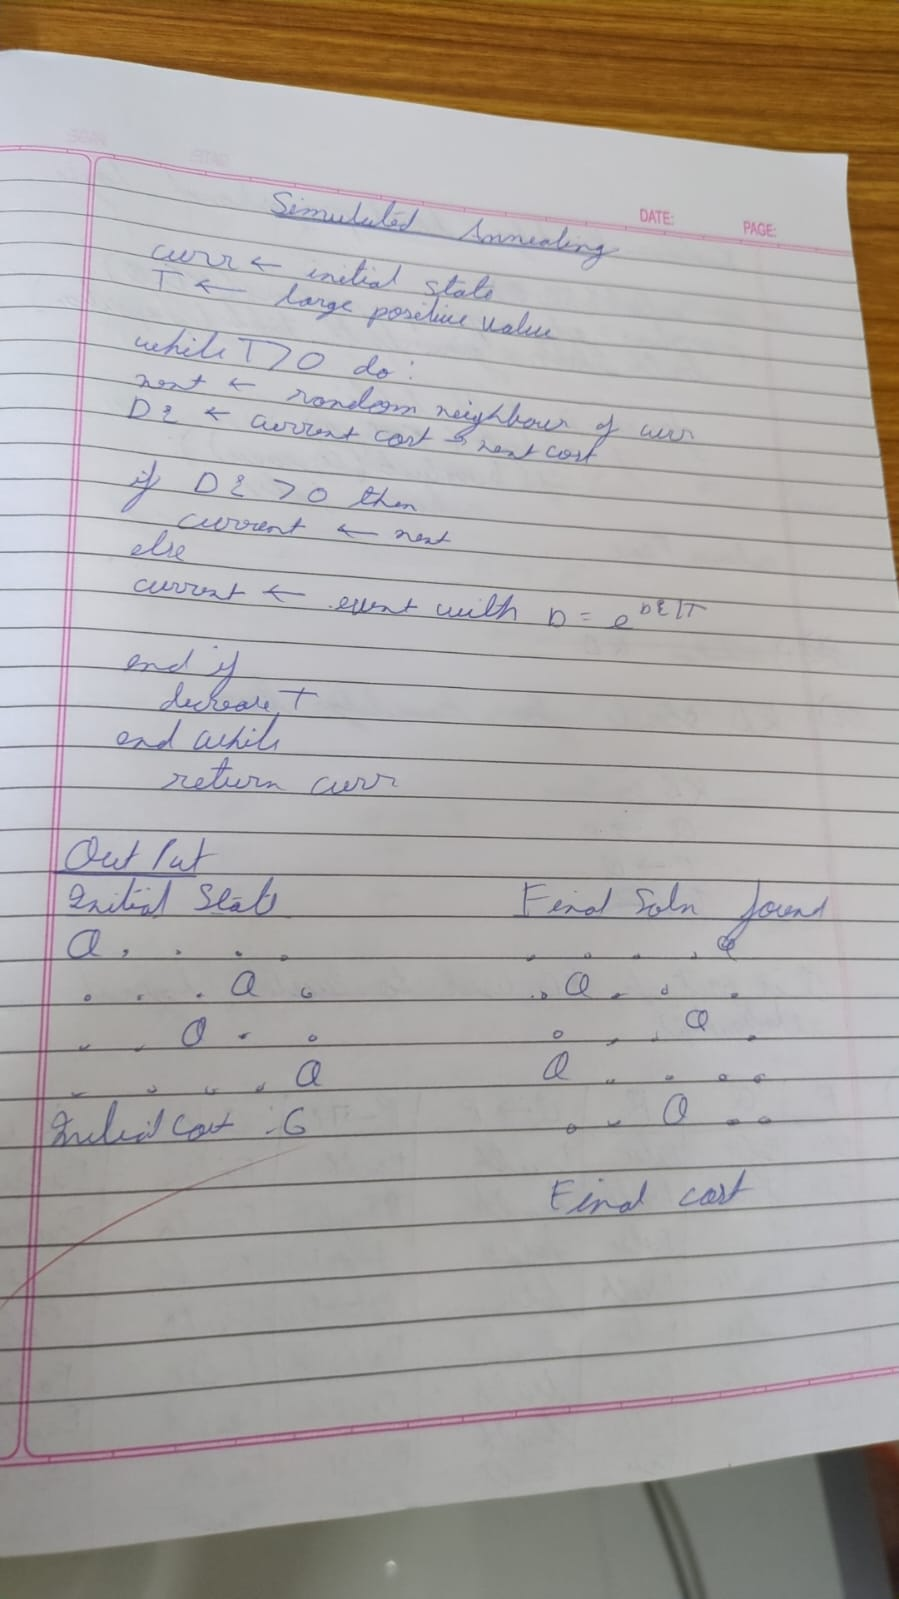 DATE:
PAGE:
Simulated Annealing
curr ← initial state
T ← large positive value
while T > 0 do:
next ← random neighbour of curr
DE ← current cost - next cost
if DE > 0 then
current ← next
else
current ← with p = e^DE/T
end if
decrease T
end while
return curr
OutPut
Initial State
Final Soln found
Q . . . .
. . . . Q
. . . Q .
. Q . . .
. . Q . .
. . . Q .
. . . . Q
Q . . . .
Initial Cost : 6
. . Q . .
Final cost